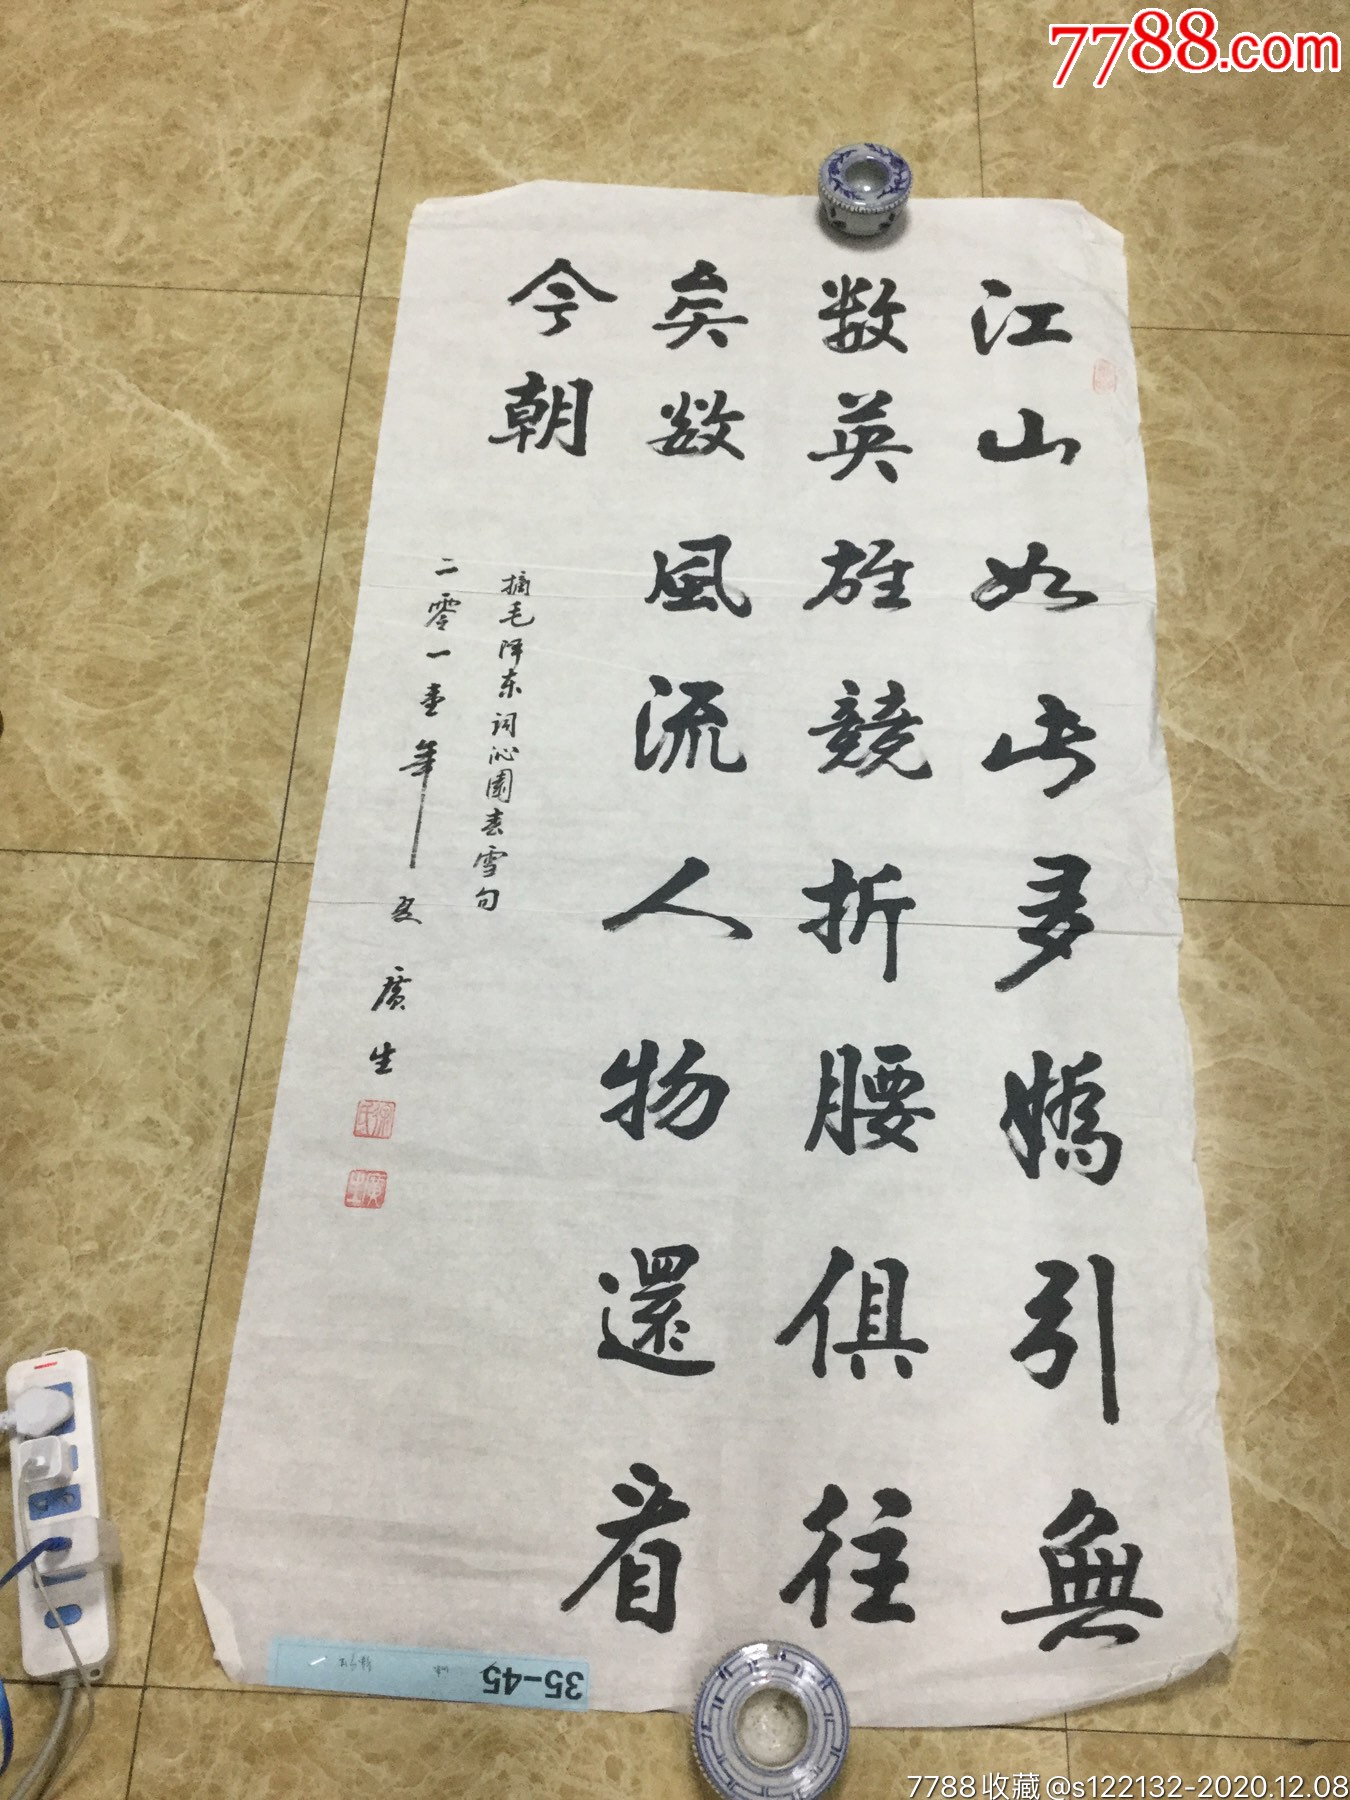 7788.com
江山如此多嬌引無
数英雄競折腰俱往
矣数風流人物還看
今朝
摘毛泽东词沁園春雪句
二零一壹年 夏 廣生
35-45
7788收藏@s122132-2020.12.08